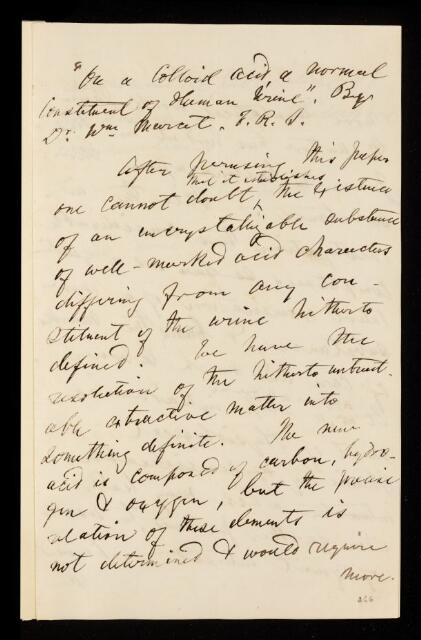 "On a Colloid acid, a normal
Constituent of Human Urine". By
Dr. Wm Marcet. F.R.S.
After perusing this paper
that it establishes
one cannot doubt, the existence
of an uncrystallizable substance
of well-marked acid characters
differing from any con-
stituent of the urine hitherto
defined. We have the
resolution of the hitherto
able extractive matter into
something definite. The new
acid is composed of carbon, hydro-
gen & oxygen, but the precise
relation of these elements is
not determined & would require
more.
266